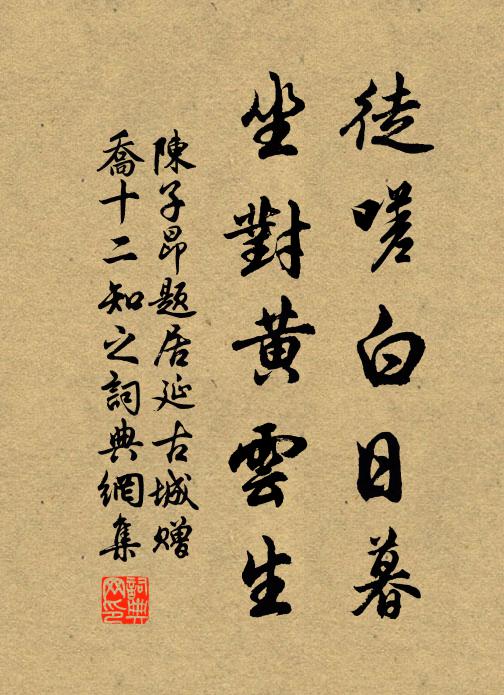 徒嗟白日暮
坐對黃雲生
陳子昂題居延古城赠
喬十二知之詞典網集
詞典
网印